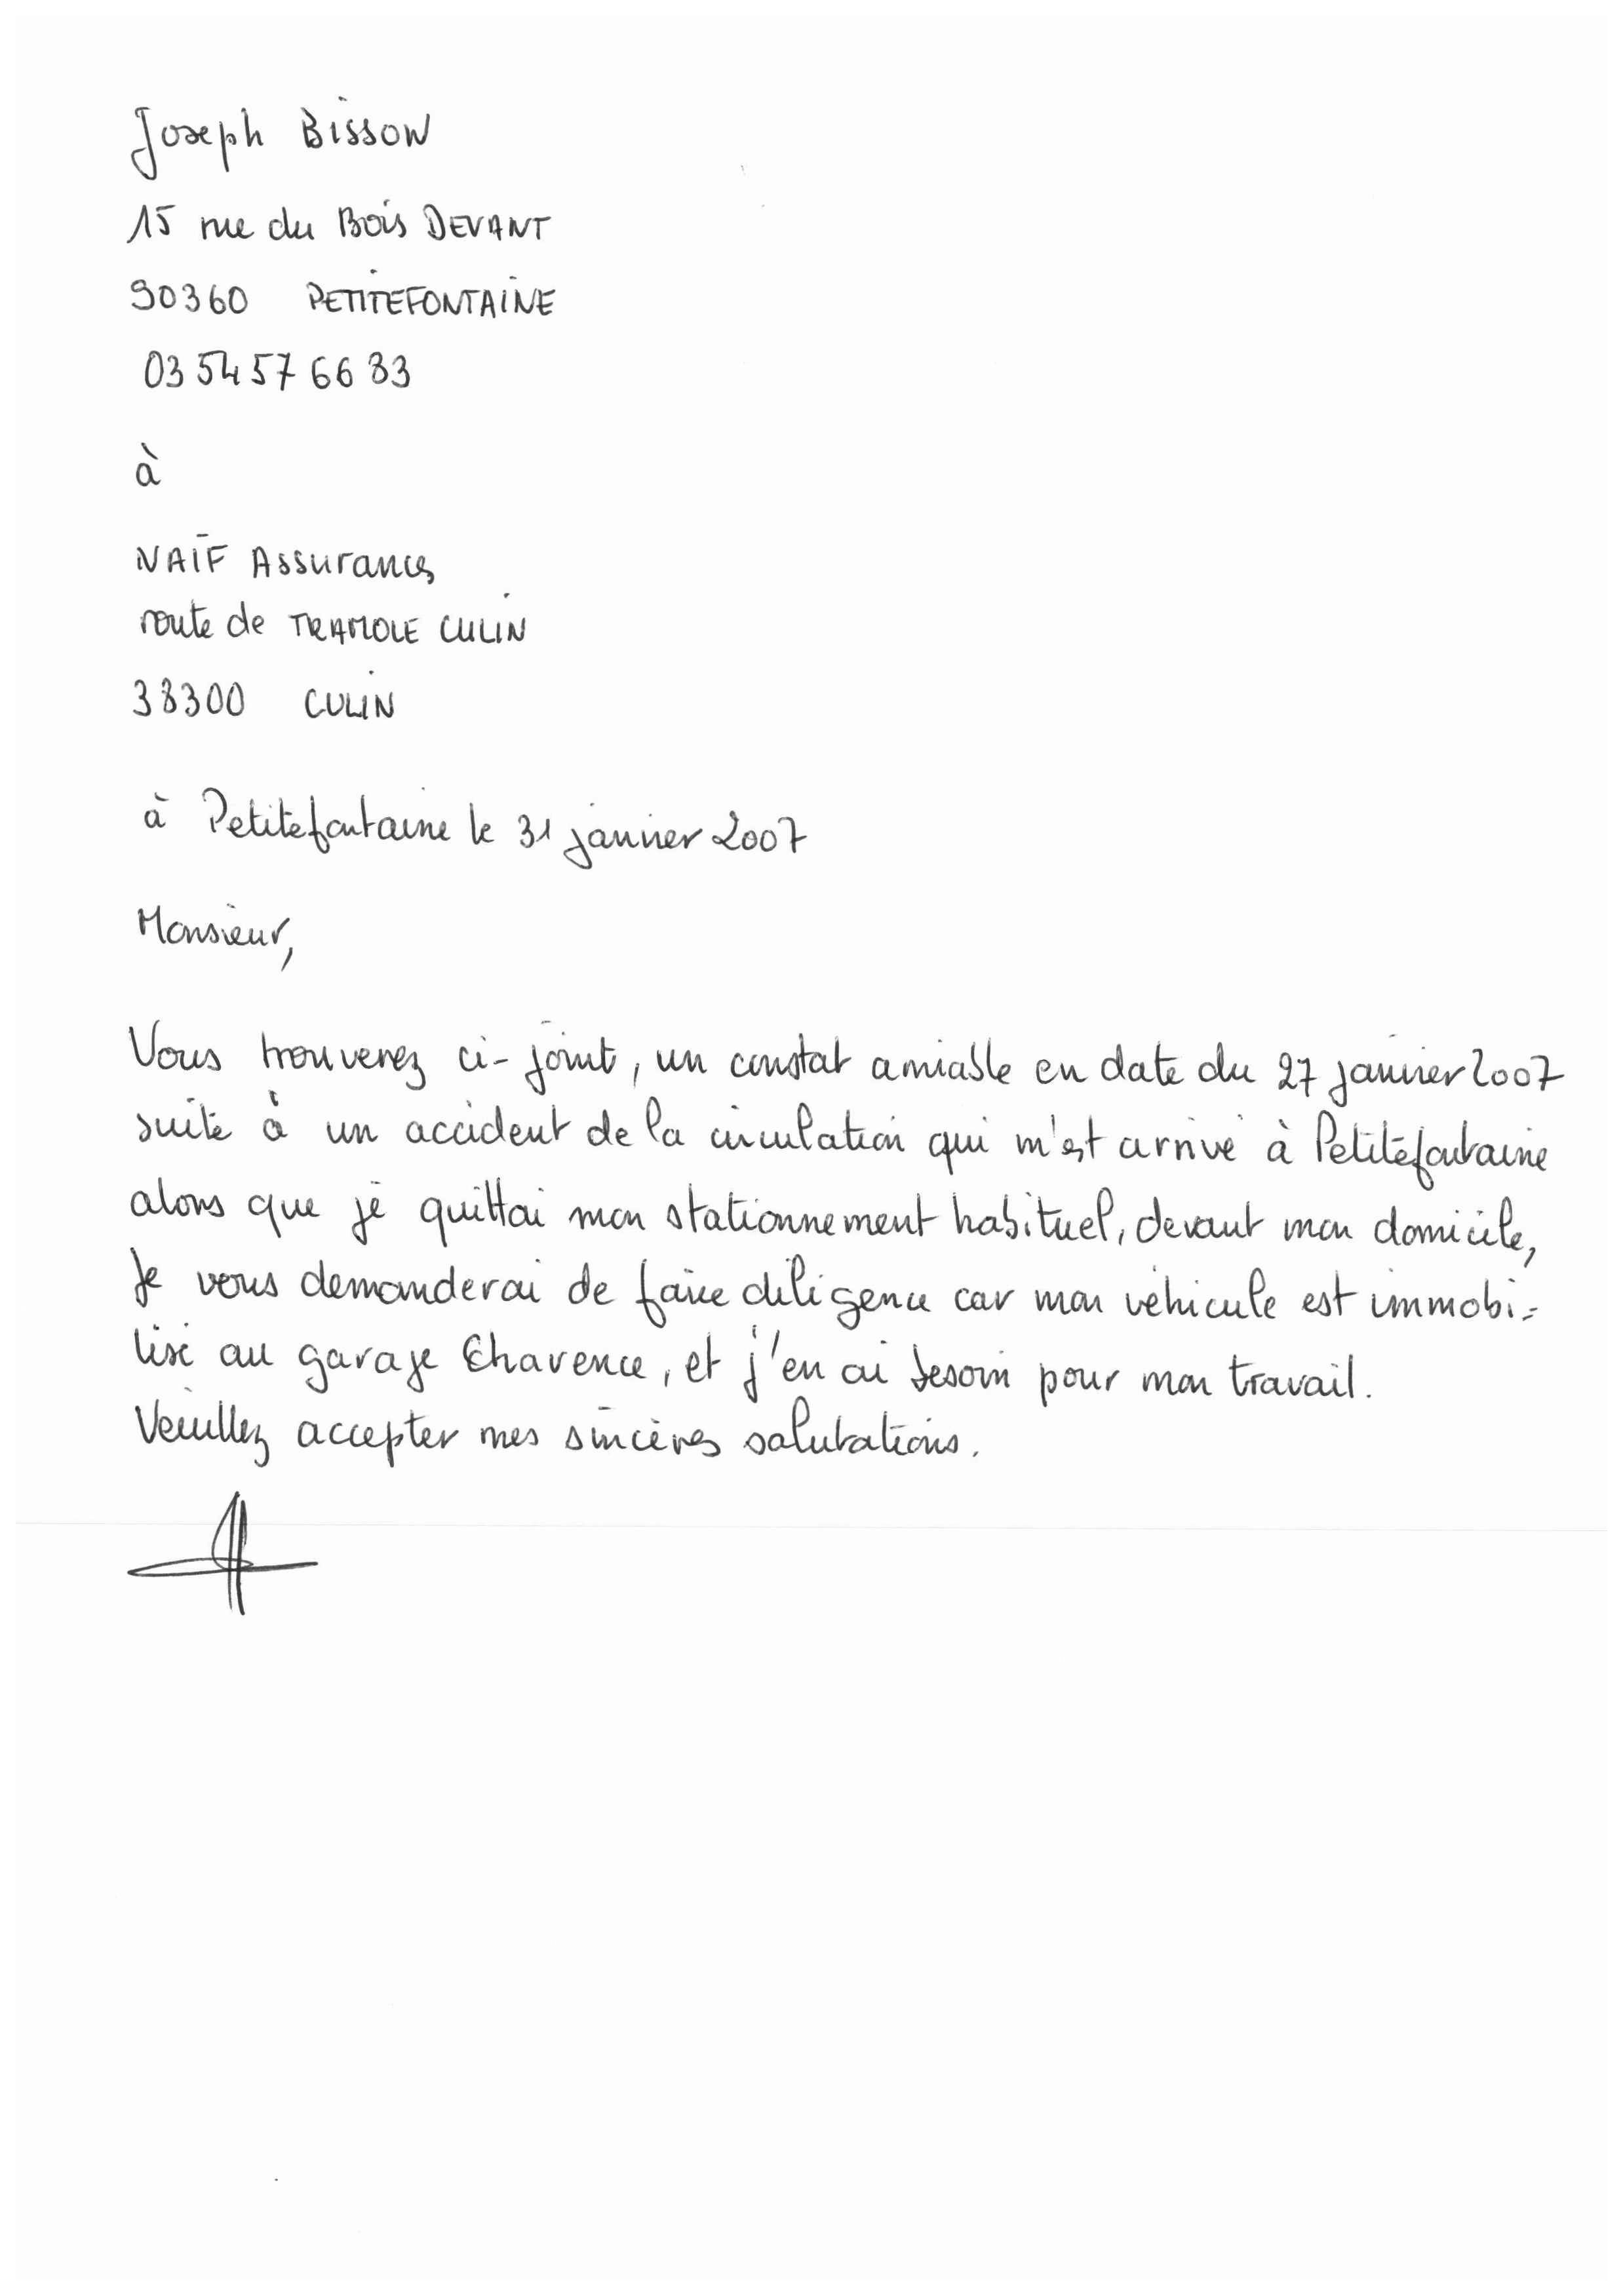 Joseph Bisson
15 rue du Bois DEVANT
90360 PETITEFONTAINE
03 54 57 66 83
à
NAÏF Assurances
route de TRAMOLE CULIN
38300 CULIN
à Petitefontaine le 31 janvier 2007
Monsieur,
Vous trouverez ci-joint, un constat amiable en date du 27 janvier 2007
suite à un accident de la circulation qui m'est arrivé à Petitefontaine
alors que je quittai mon stationnement habituel, devant mon domicile,
Je vous demanderai de faire diligence car mon véhicule est immobi-
lisé au garage Chavence, et j'en ai besoin pour mon travail.
Veuillez accepter mes sincères salutations.